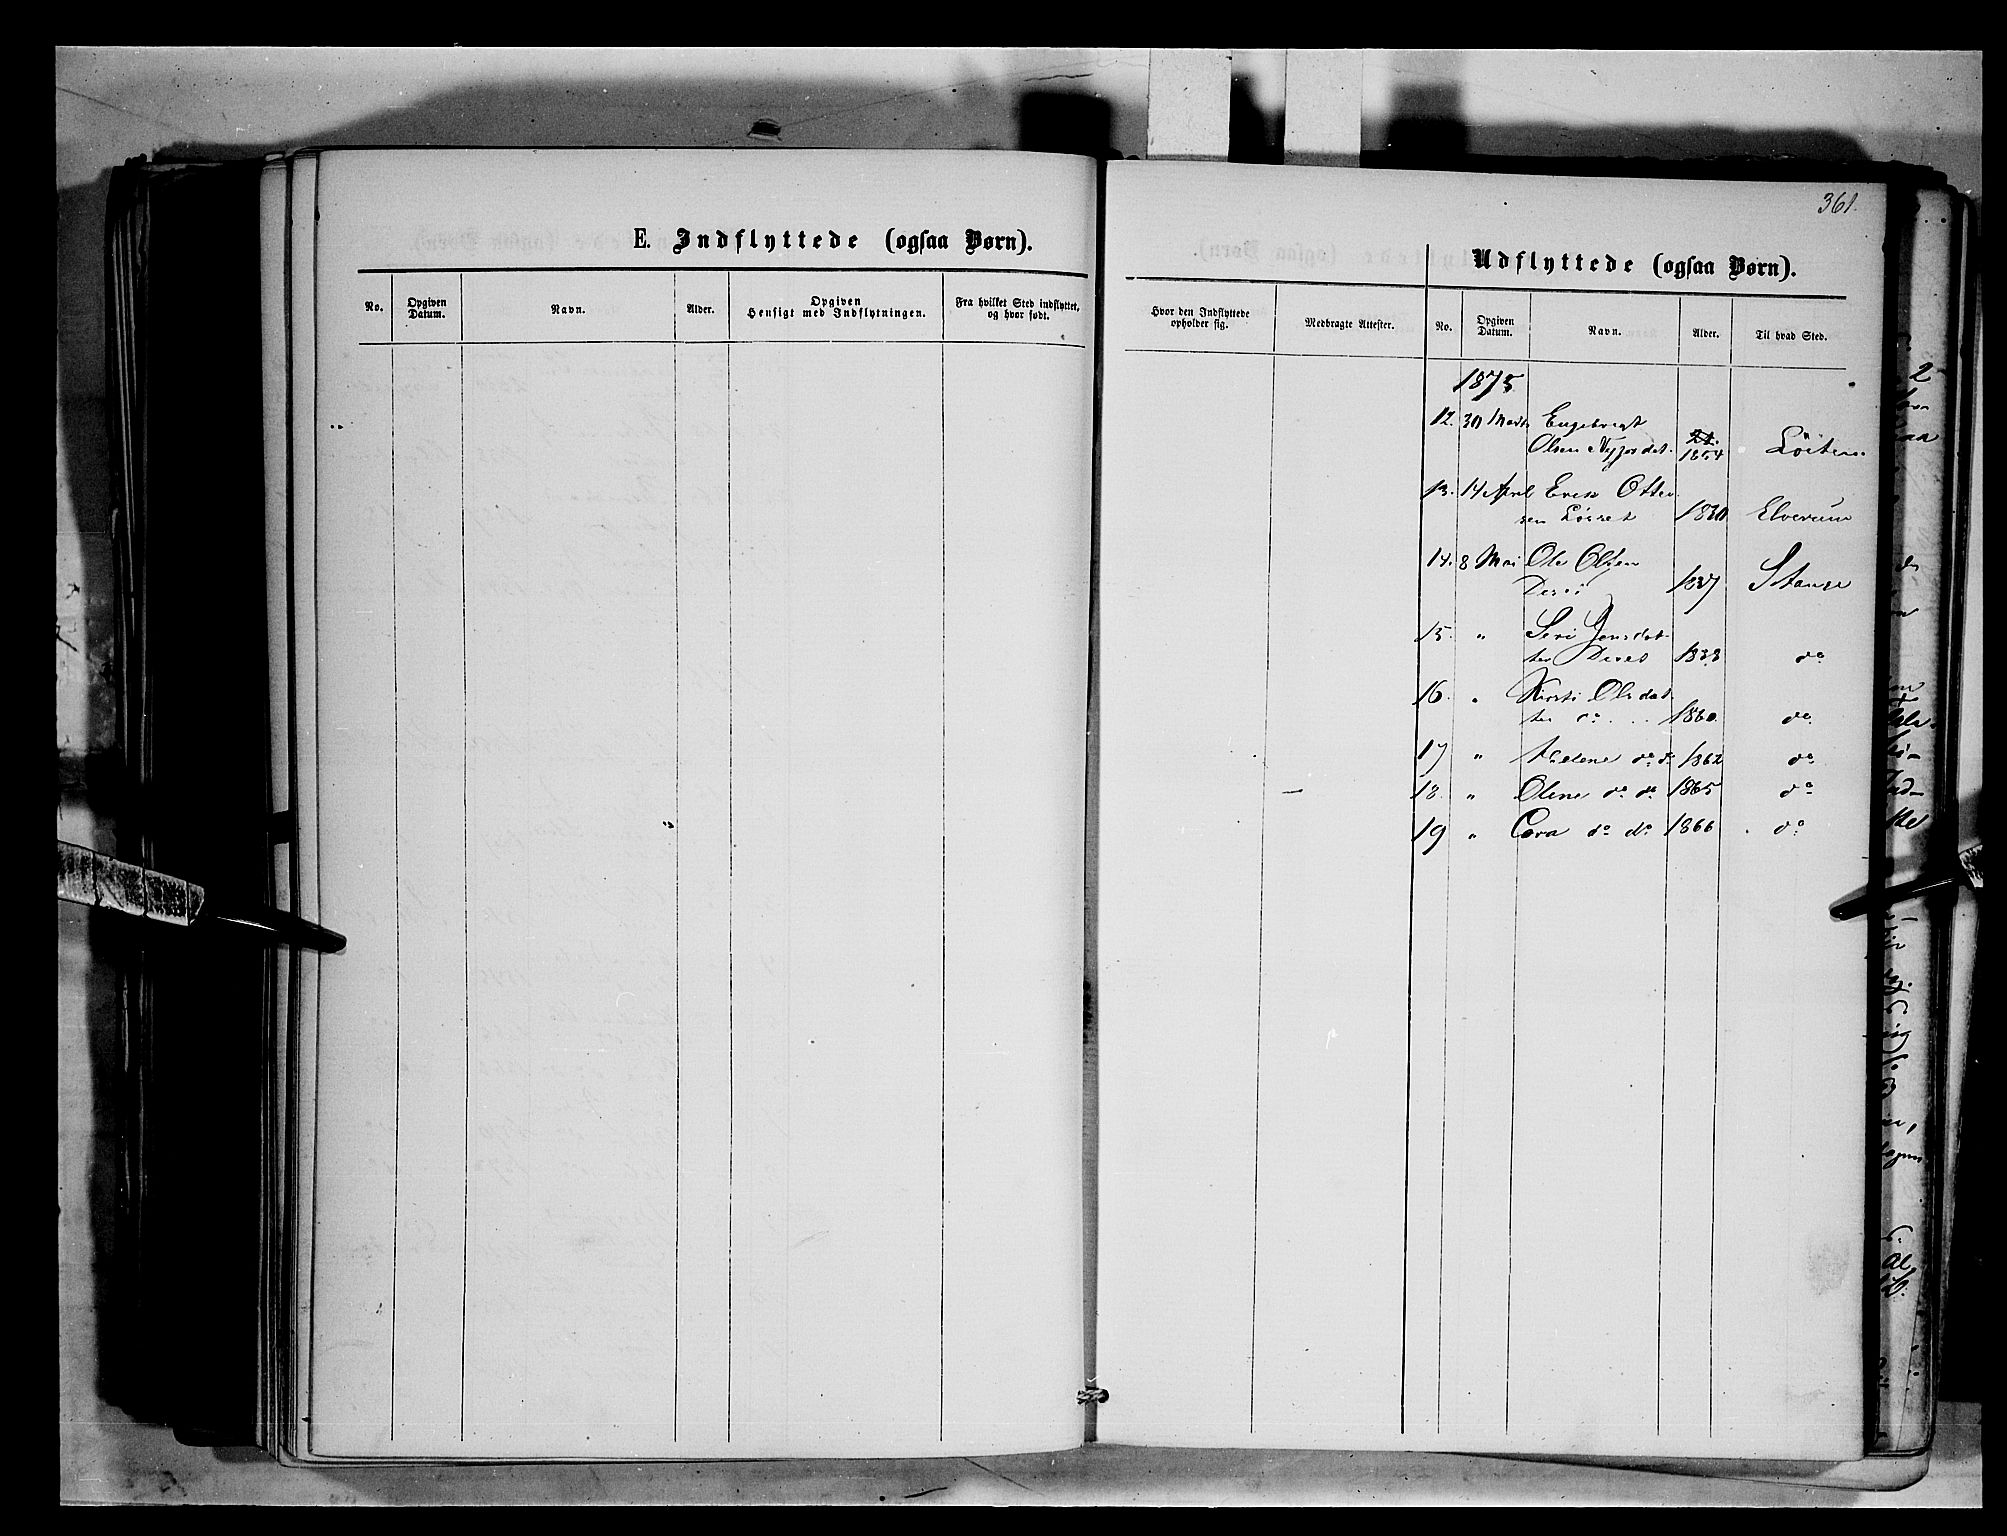 361.
E. Indflyttede (ogsaa Børn).
Udflyttede (ogsaa Børn).
No. Opgiven Datum. Navn. Alder. Opgiven Hensigt med Indflytningen. Fra hvilket Sted indflyttet, og hvor født.
Hvor den Indflyttede opholder sig. Medbragte Attester. No. Opgiven Datum. Navn. Alder. Til hvad Sted.
1875
12. 30 Marts Engebregt
Olsen 1854 Löiten
13. 14 April Erik Otter
sen 1830 Elverum
14. 8 Mai Ole Olsen
1837 Stange
15. " Siri Jonsdat
ter 1838 do
16. " Kirsti Olsdat
ter do 1860 do
17 " Helene do do 1862 do
18. " Oline do do 1865 do
19 " do do 1866 do